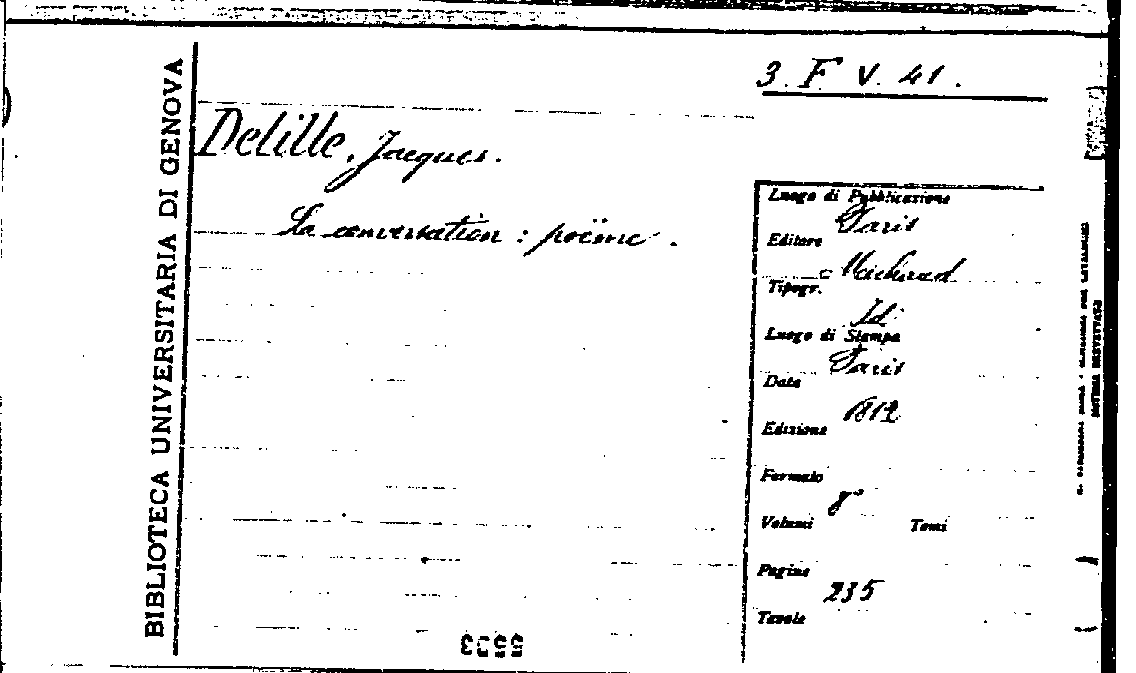 3. F V. 41.
BIBLIOTECA UNIVERSITARIA DI GENOVA
Delille, Jacques.
La conversation : poëme.
Luogo di Pubblicazione
Paris
Editore
Michaud
Tipogr.
Id.
Luogo di Stampa
Paris
Data
1812
Edizione
Formato
8°
Volumi Tomi
Pagine
235
Tavole